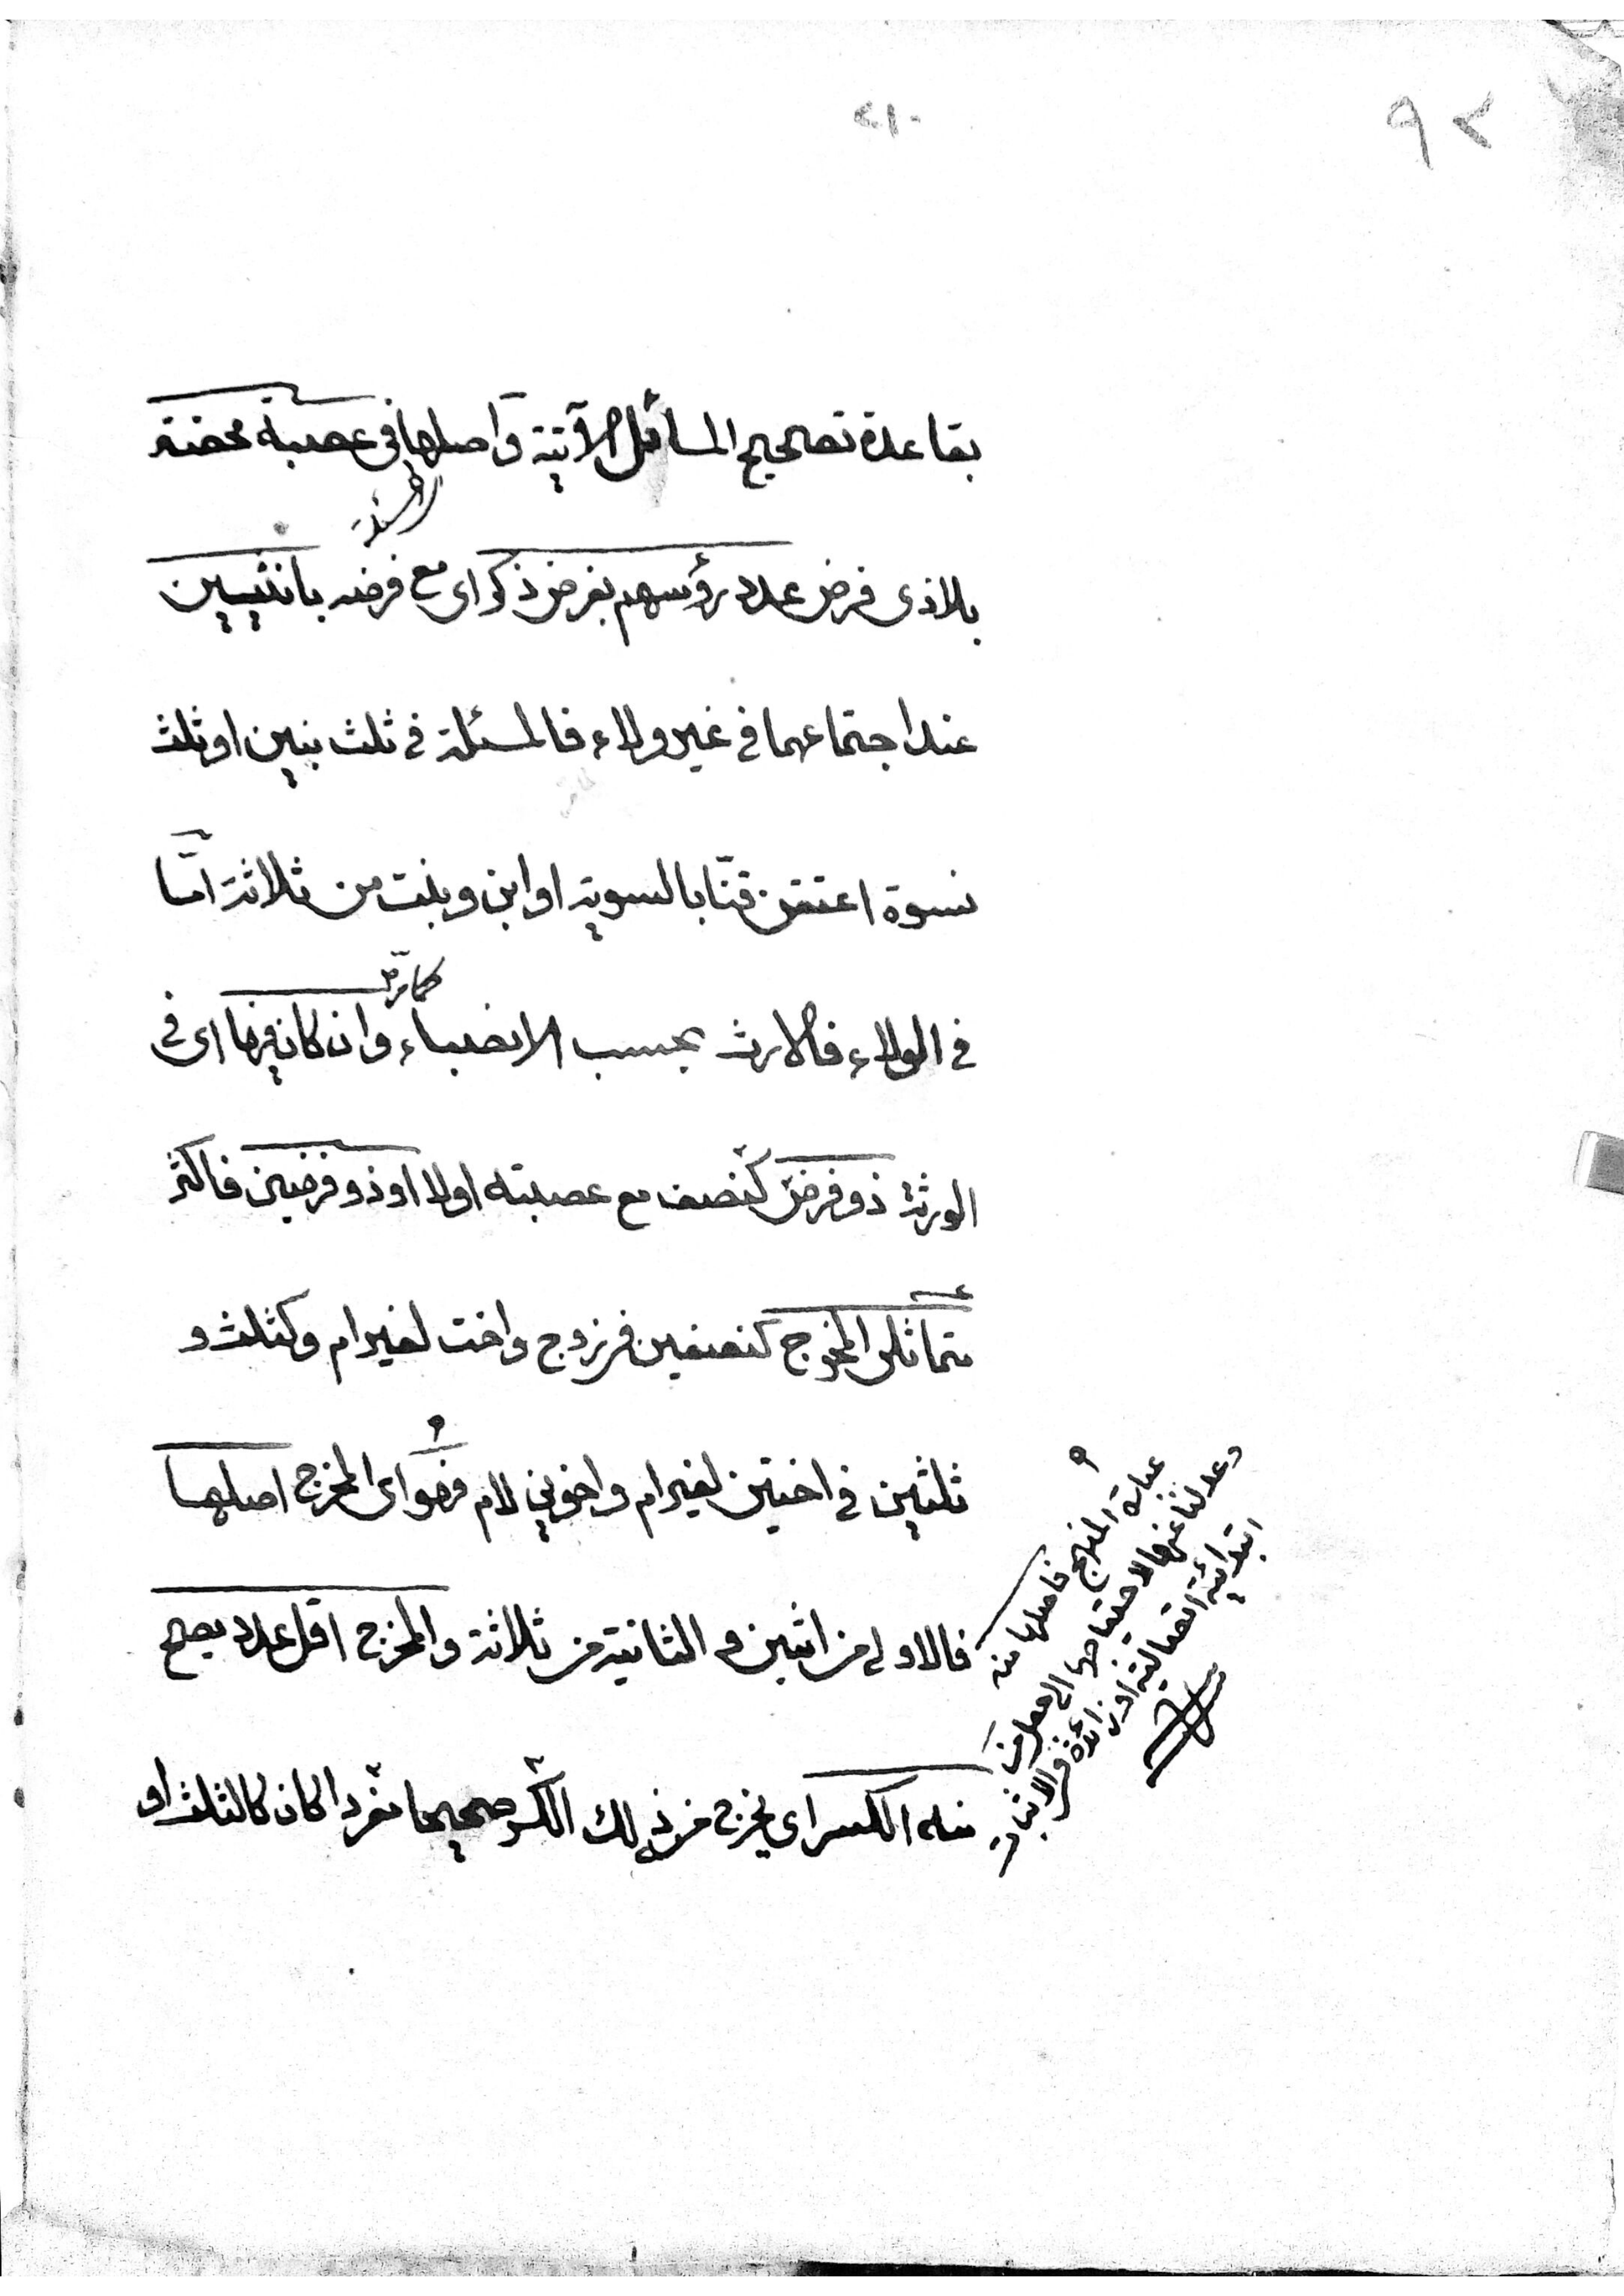 ٢١٠
٩٢
بقاعدة تصحيح المسائل الآتية واصلها في عصبة محضة
المسئلة
بلا ذى فرض عدد رؤسهم بفرض ذكر اى مع فرضه بانثيين
عند اجتماعهما في غير ولاء فالمسئلة في ثلث بنين او ثلث
نسوة اعتقن قنّا بالسوية او ابن وبنت من ثلاثة امّا
كما مرّ
في الولاء فالارث بحسب الانصباء وان كان فيها اى في
الورثة ذو فرض كنصف مع عصبته اولا او ذو فرضين فاكثر
متماثلى المخرج كنصفين في زوج واخت لغير ام وكثلث و
ثلثين في اختين لغير ام واخوين لام فهو اى المخرج اصلها
فالاولى من اثنين والثانية من ثلاثة والمخرج اقل عدد يصح
منه الكسر اى يخرج من ذلك الكسر صحيحا مفردا كان كالثلث او
عبارة المنهج فاصلها منه
وعدلنا عنها لاحتياجها الى معرفة
ابتدائية اتصالية او زائدة في الاثبات